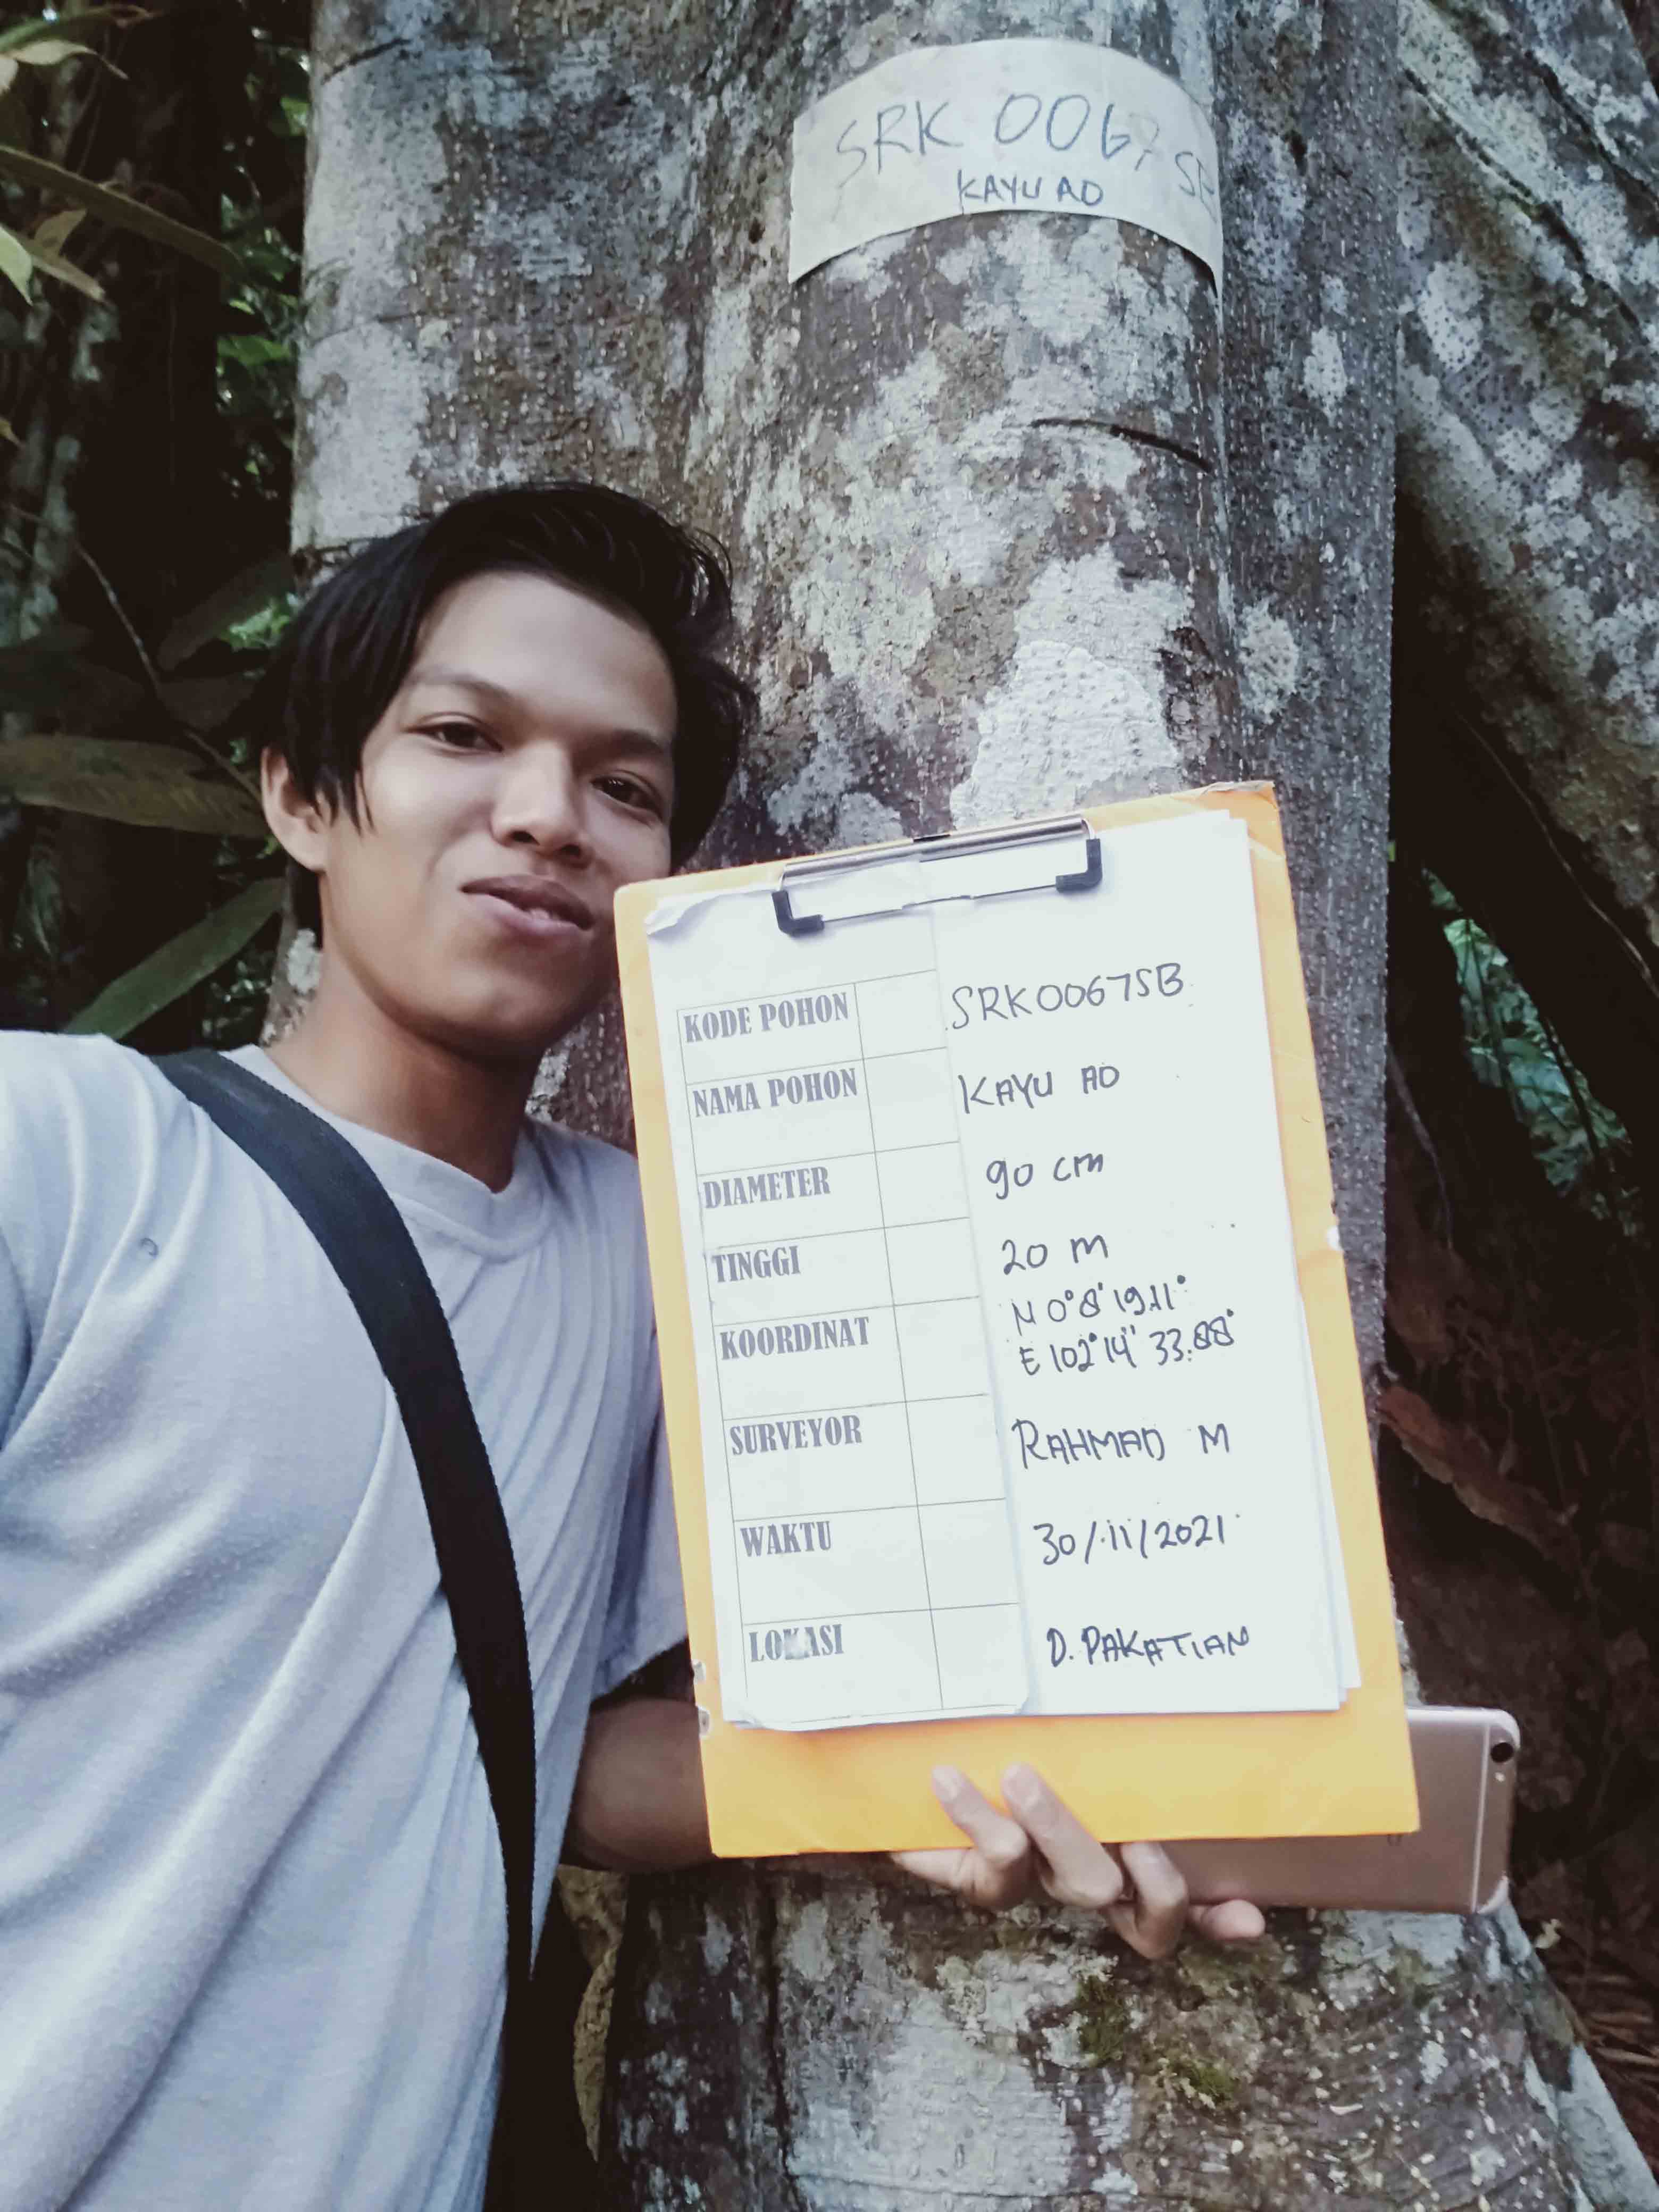 SRK 0067 SB
KAYU AO
KODE POHON SRK0067SB
NAMA POHON KAYU AO
DIAMETER 90 cm
TINGGI 20 m
KOORDINAT N 0°8'19.11°
E 102°14" 33.88°
SURVEYOR RAHMAD M
WAKTU 30/11/2021
LOKASI D. PAKATIAN